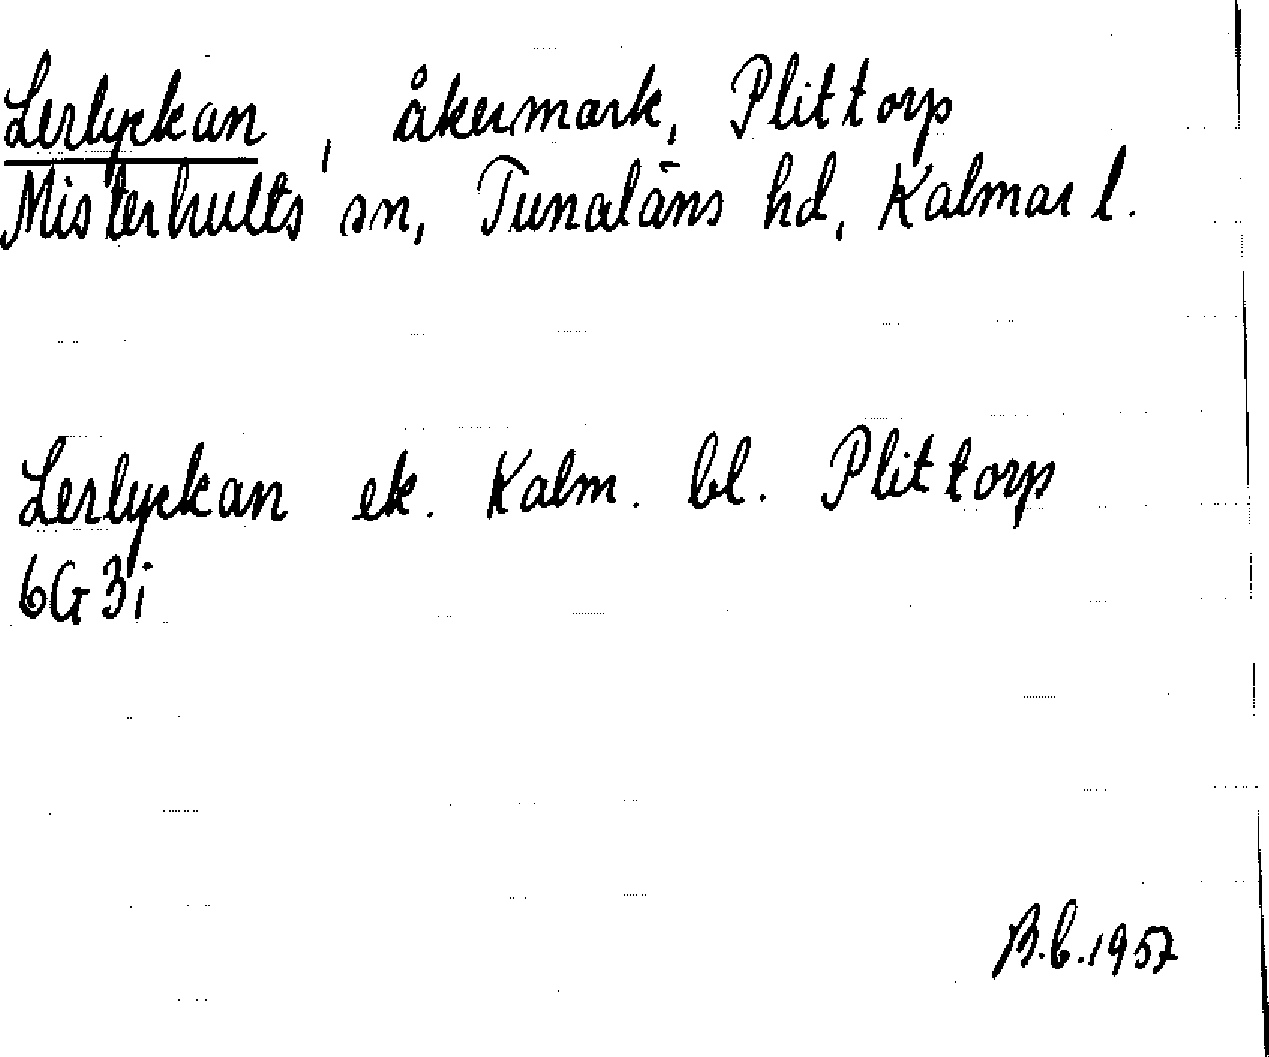 Lerlyckan, åkermark, Plittorp
Misterhults sn, Tunaläns hd, Kalmar l.
Lerlyckan ek. Kalm. bl. Plittorp
6G3i
B.b.1957